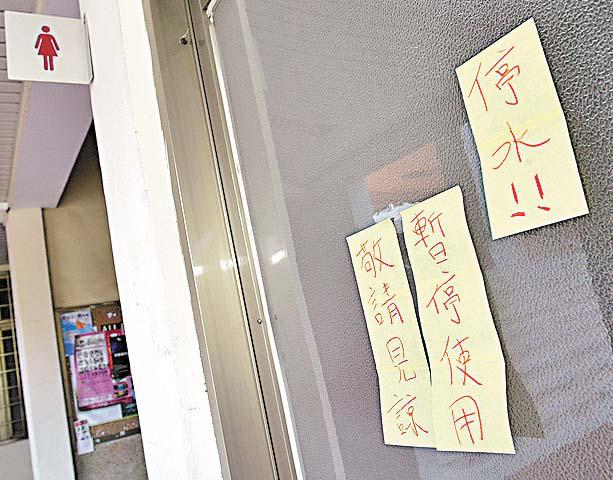 停水!!
暫停使用
敬請見諒